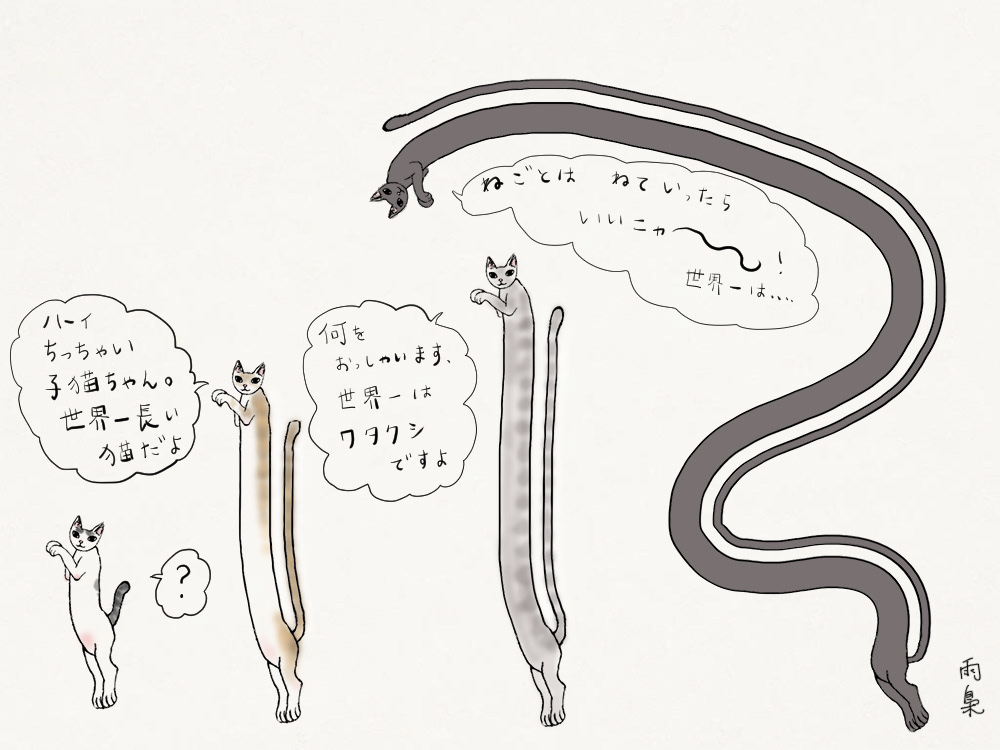 ハーイ
ちっちゃい
子猫ちゃん。
世界一長い
猫だよ
?
何を
おっしゃいます、
世界一は
ワタクシ
ですよ
ねごとは ねていったら
いいニャ〜!
世界一は....
雨梟